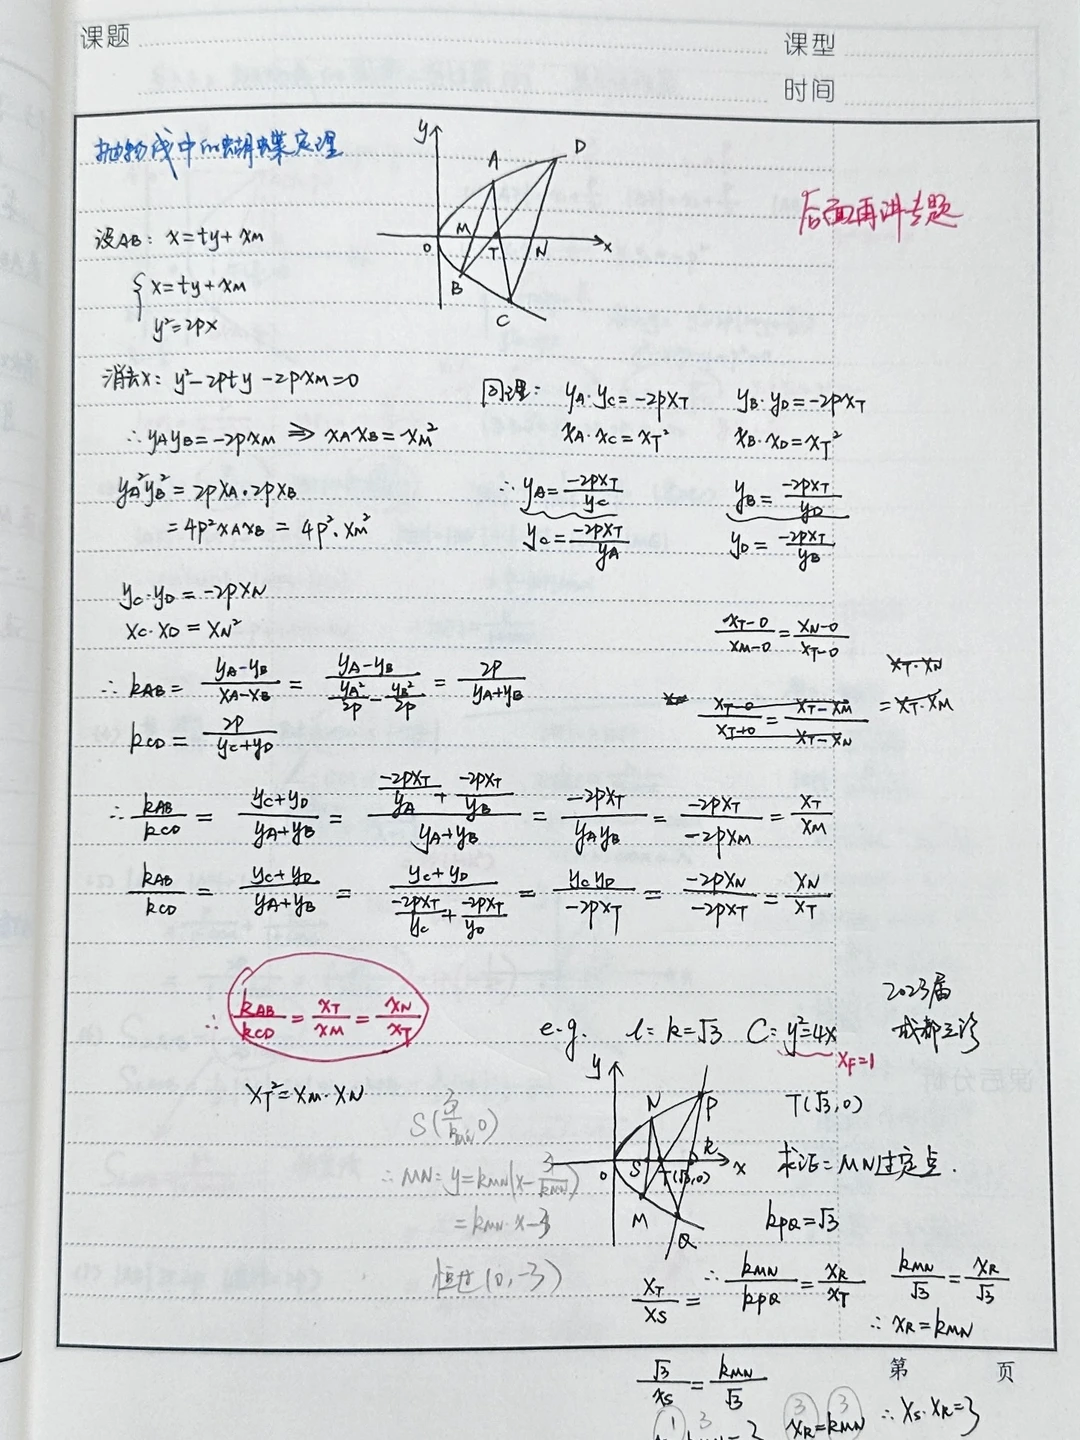 课题
课型
时间
抛物线中的蝴蝶定理
y
A
D
M
T
N
O
x
B
C
后面再讲专题
设AB: x=ty+x_M
{ x=ty+x_M
y²=2px
消去x: y²-2pty-2px_M=0
∴ y_A y_B=-2px_M ⇒ x_A x_B=x_M²
y_A² y_B² = 2px_A·2px_B
= 4p²x_A x_B = 4p²·x_M²
同理: y_A·y_C=-2px_T   y_B·y_D=-2px_T
x_A·x_C=x_T²   x_B·x_D=x_T²
∴ y_A=-2px_T/y_C   y_B=-2px_T/y_D
y_C=-2px_T/y_A   y_D=-2px_T/y_B
y_C·y_D=-2px_N
x_C·x_D=x_N²
(x_T-0)/(x_M-0)=(x_N-0)/(x_T-0)
x_T·x_N
(x_T-0)/(x_T+0)=(x_T-x_M)/(x_T-x_N) =x_T·x_M
∴ k_AB=(y_A-y_B)/(x_A-x_B)=(y_A-y_B)/(y_A²/2p-y_B²/2p)=2p/(y_A+y_B)
k_CD=2p/(y_C+y_D)
∴ k_AB/k_CD=(y_C+y_D)/(y_A+y_B)=(-2px_T/y_A+-2px_T/y_B)/(y_A+y_B)=-2px_T/(y_A y_B)=-2px_T/-2px_M=x_T/x_M
k_AB/k_CD=(y_C+y_D)/(y_A+y_B)=(y_C+y_D)/(-2px_T/y_C+-2px_T/y_D)=y_C y_D/-2px_T=-2px_N/-2px_T=x_N/x_T
∴ k_AB/k_CD=x_T/x_M=x_N/x_T
x_T²=x_M·x_N
2023届
成都三诊
e.g. l: k=√3   C: y²=4x
x_F=1
y
N
P
R
S
T(√3,0)
O
x
M
Q
T(√3,0)
求证: MN过定点.
k_PQ=√3
S(3/k_MN,0)
∴ MN: y=k_MN(x-3/k_MN)
=k_MN·x-3
恒过(0,-3)
x_T/x_S= ∴ k_MN/k_PQ=x_R/x_T   k_MN/√3=x_R/√3
∴ x_R=k_MN
第 页
√3/x_S=k_MN/√3
x_R=k_MN ∴ x_S·x_R=3